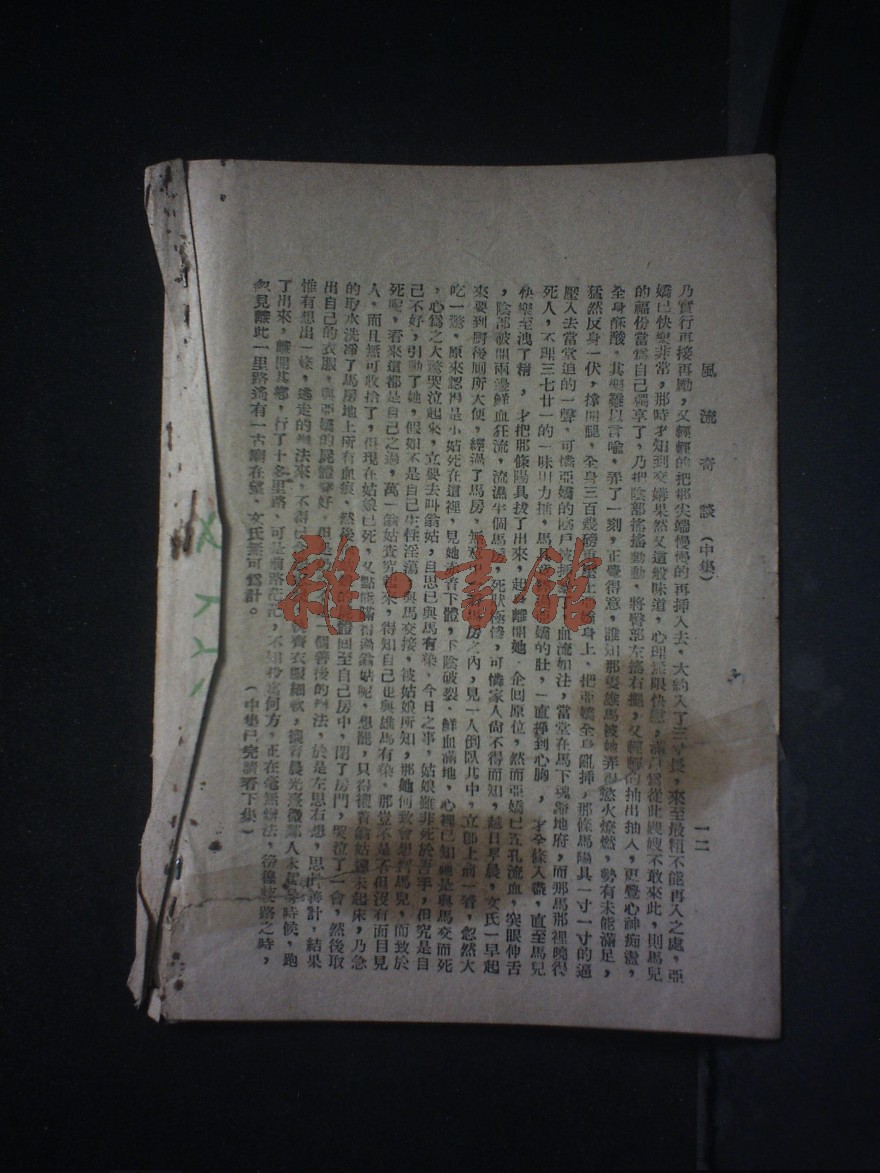 風流奇談（中集）
一二
乃實行再接再勵，又輕輕的把那尖端慢慢的再挿入去，大約入了三寸長，來至最粗不能再入之處，亞
嬌已快樂非常，那時才知到交媾果然又這般味道，心理無限快慰，滿以為從此嫂嫂不敢來此，則馬兒
的福份當為自己獨享了，乃把陰部搖搖動動，將臀部左搖右擺，又輕輕的抽出抽入，更覺心神痴盪，
全身酥酸，其樂難以言喻，弄了一刻，正覺得意，誰知那隻雄馬被她弄得慾火燎燃，勢有未能滿足，
猛然反身一伏，撑開腿，全身三百幾磅重壓上嬌身上，把亞嬌全身亂挿，那條馬陽具一寸一寸的逼
壓入去當堂迫的一聲，可憐亞嬌的陰戶被挿　血流如注，當堂在馬下魂歸地府，而那馬那裡曉得
死人，不理三七廿一的一味用力抽，馬具　嬌的肚，一直挿到心胸，才全條入盡，直至馬兒
快樂至洩了精，才把那條陽具拔了出來，起　離開她，企回原位，然而亞嬌已五孔流血，突眼伸舌
，陰部破開兩邊鮮血狂流，流濕半個馬　死狀極慘，可憐家人尚不得而知，越日早晨，文氏一早起
來要到厨後廁所大便，經過了馬房，無　房之內，見一人倒臥其中，立即上前一看，忽然大
吃一驚，原來認得是小姑死在這裡，見她赤者下體，下陰破裂，鮮血滿地，心裡已知　是與馬交而死
，心為之大驚哭泣起來，立要去叫翁姑，自思已與馬有染，今日之事，姑娘雖非死於吾手，但究是自
己不好，引動了她，假如不是自己生性淫蕩　與馬交接，被姑娘所知，那她何致會想到馬兒，而致於
死呢，看來這都是自己之過，萬一翁姑查究起來，得知自己也與雄馬有染，那豈不是不但沒有面目見
人，而且無可收拾了，但現在姑娘已死，又點能滿得過翁姑呢，想罷，只得趁着翁姑還未起床，乃急
的取水洗淨了馬房地上所有血痕，然後　的　體回至自己房中，閉了房門，哭泣了一會，然後取
出自己的衣服，與亞嬌的屍體　好，但是　個善後的辦法，於是左思右想，思　計，結果
惟有想出一條，逃走的辦法來，不得已　齊衣服細軟，趁着晨光熹微鄰人未起身時候，跑
了出來，離開其鄉，行了十多里路，可是前路茫茫，不知投　何方，正在毫無辦法，徬徨　路之時，
忽見離此一里路遙有一古廟在望，文氏無可為計。
（中集已完請看下集）
雜·書館